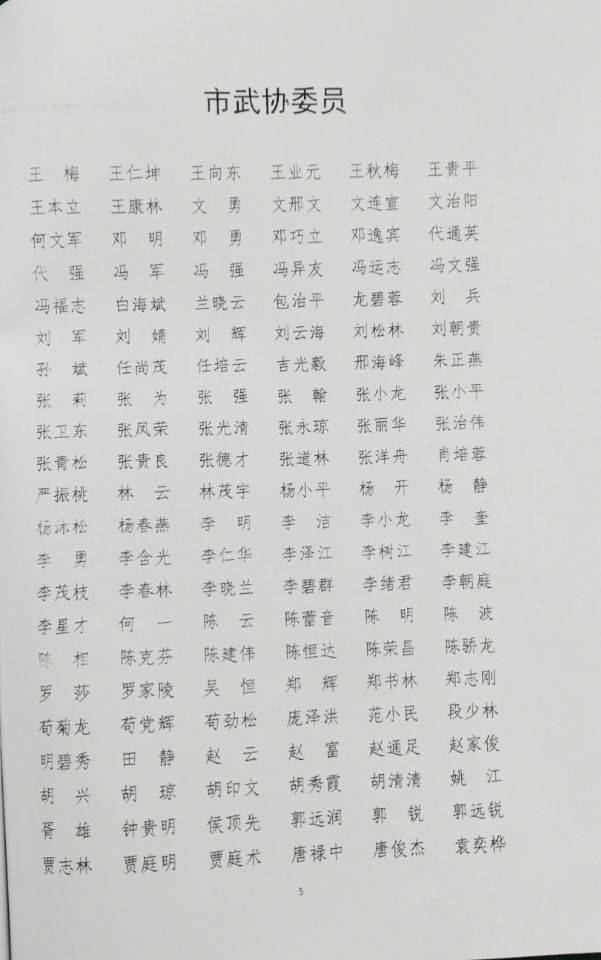 市武协委员
王　梅　王仁坤　王向东　王业元　王秋梅　王贵平
王本立　王康林　文　勇　文邢文　文连宣　文治阳
何文军　邓　明　邓　勇　邓巧立　邓逸宾　代通英
代　强　冯　军　冯　强　冯异友　冯运志　冯文强
冯福志　白海斌　兰晓云　包治平　龙碧蓉　刘　兵
刘　军　刘　婧　刘　辉　刘云海　刘松林　刘朝贵
孙　斌　任尚茂　任培云　吉光毅　邢海峰　朱正燕
张　莉　张　为　张　强　张　翰　张小龙　张小平
张卫东　张凤荣　张光清　张永琼　张丽华　张治伟
张青松　张贵良　张德才　张道林　张洋舟　肖培蓉
严振桃　林　云　林茂宇　杨小平　杨　开　杨　静
杨沐松　杨春燕　李　明　李　洁　李小龙　李　奎
李　勇　李含光　李仁华　李泽江　李树江　李建江
李茂枝　李春林　李晓兰　李碧群　李绪君　李朝庭
李星才　何　一　陈　云　陈蕾音　陈　明　陈　波
陈　相　陈克芬　陈建伟　陈恒达　陈荣昌　陈骄龙
罗　莎　罗家陵　吴　恒　郑　辉　郑书林　郑志刚
苟菊龙　苟党辉　苟劲松　庞泽洪　范小民　段少林
明碧秀　田　静　赵　云　赵　富　赵通足　赵家俊
胡　兴　胡　琼　胡印文　胡秀霞　胡清清　姚　江
胥　雄　钟贵明　侯顶先　郭远润　郭　锐　郭远锐
贾志林　贾庭明　贾庭术　唐禄中　唐俊杰　袁奕桦
5